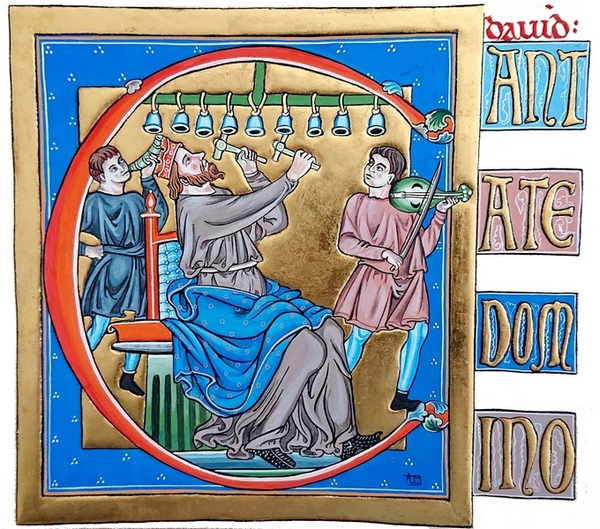 dauid:
C ANT
ATE
DOM
INO